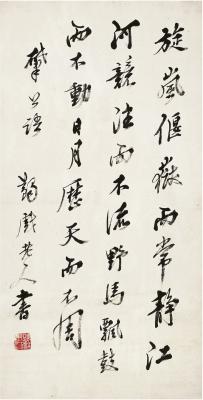 旋嵐偃嶽而常靜江
河競注而不流野馬飄鼓
而不動日月歷天而不周
肇公語　蠲戲老人書